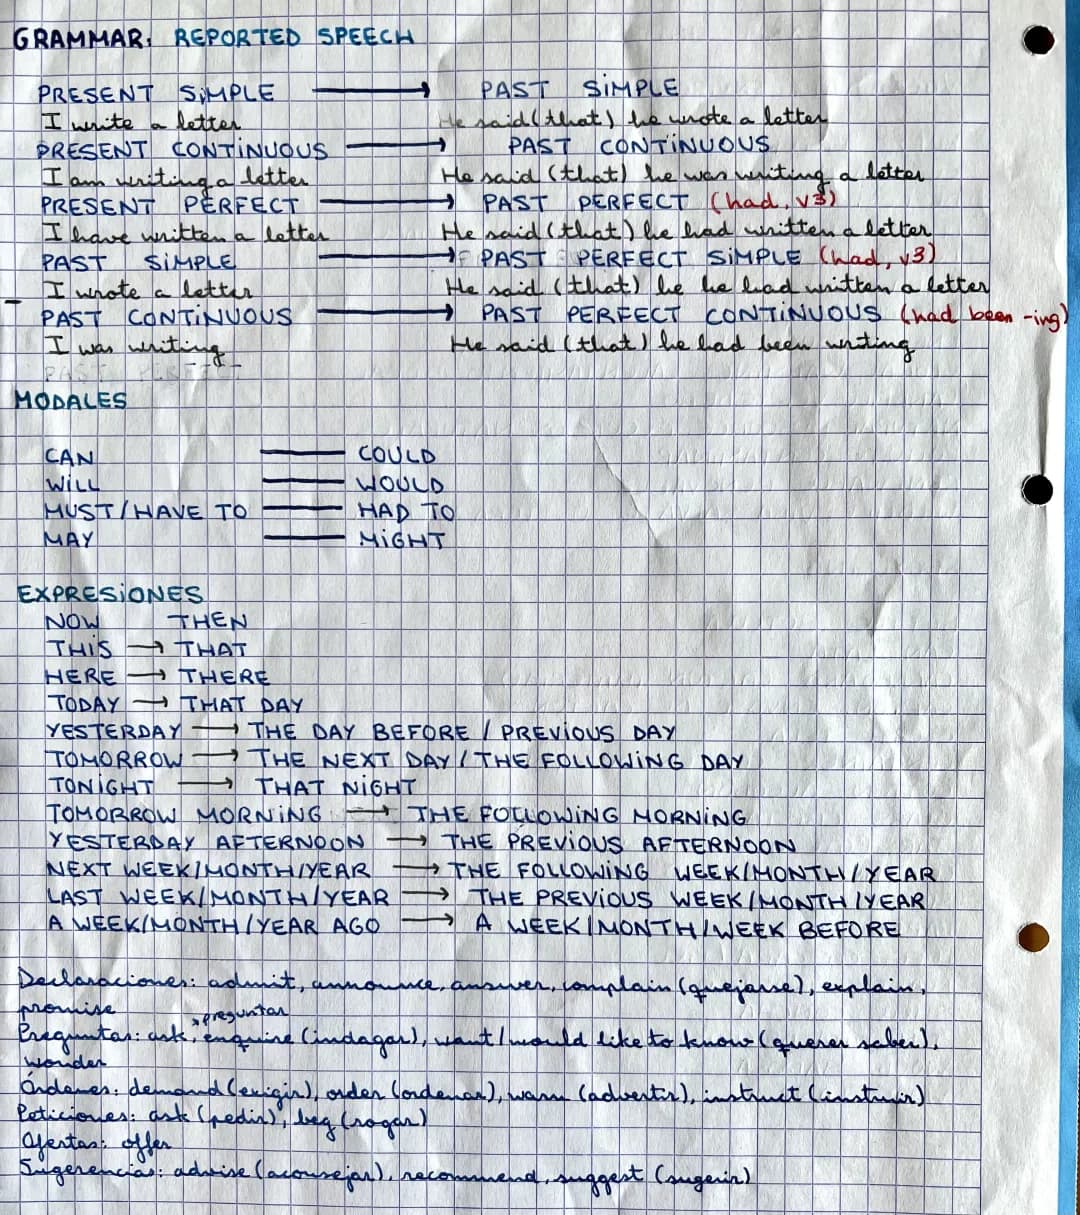 GRAMMAR: REPORTED SPEECH
PRESENT SIMPLE → PAST SIMPLE
I write a letter He said (that) he wrote a letter
PRESENT CONTINUOUS → PAST CONTINUOUS
I am writing a letter He said (that) he was writing a letter
PRESENT PERFECT → PAST PERFECT (had, v3)
I have written a letter He said (that) he had written a letter
PAST SIMPLE → PAST PERFECT SIMPLE (had, v3)
I wrote a letter He said (that) he he had written a letter
PAST CONTINUOUS → PAST PERFECT CONTINUOUS (had been -ing)
I was writing He said (that) he had been writing
MODALES
CAN — COULD
WILL — WOULD
MUST/HAVE TO — HAD TO
MAY — MIGHT
EXPRESIONES
NOW THEN
THIS → THAT
HERE → THERE
TODAY → THAT DAY
YESTERDAY → THE DAY BEFORE / PREVIOUS DAY
TOMORROW → THE NEXT DAY / THE FOLLOWING DAY
TONIGHT → THAT NIGHT
TOMORROW MORNING → THE FOLLOWING MORNING
YESTERDAY AFTERNOON → THE PREVIOUS AFTERNOON
NEXT WEEK/MONTH/YEAR → THE FOLLOWING WEEK/MONTH/YEAR
LAST WEEK/MONTH/YEAR → THE PREVIOUS WEEK/MONTH/YEAR
A WEEK/MONTH/YEAR AGO → A WEEK/MONTH/WEEK BEFORE
Declaraciones: admit, announce, answer, complain (quejarse), explain,
promise
→ preguntar
Preguntas: ask, enquire (indagar), want/would like to know (querer saber),
wonder
Órdenes: demand (exigir), order (ordenar), warn (advertir), instruct (instruir)
Peticiones: ask (pedir), beg (rogar)
Ofertas: offer
Sugerencias: advise (aconsejar), recommend, suggest (sugerir)